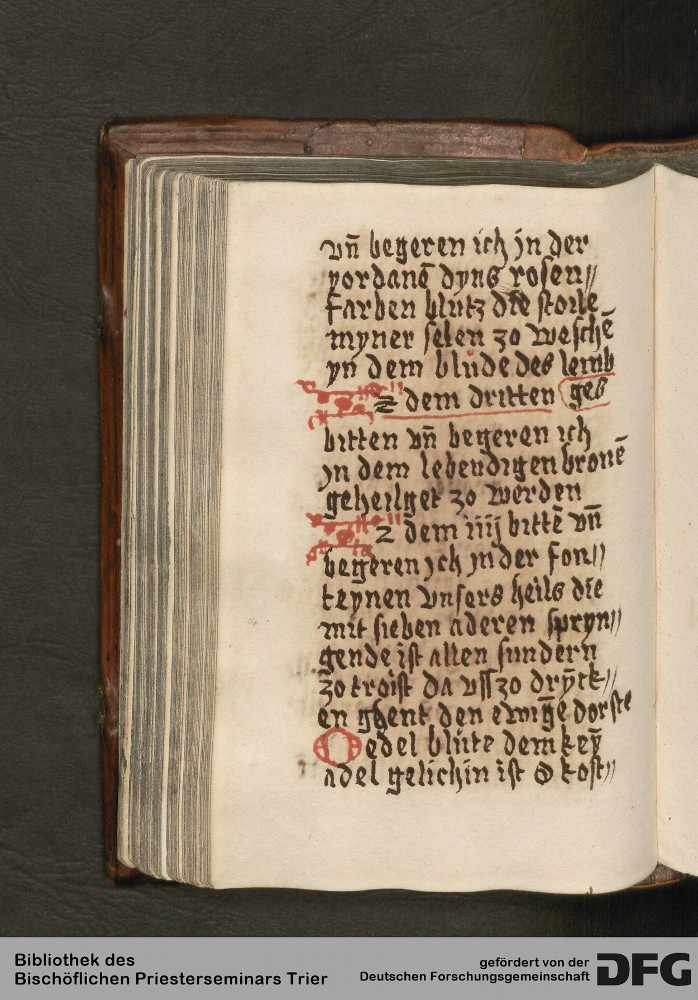 vn̄ begeren ich jn der
yordanē dyns rosen//
farben blutz die storie
myner selen zo weschē
yn dem blude des lemb
Z dem dritten ges
bitten vn̄ begeren ich
jn dem lebendigen bronē
geheilget zo werden
Z dem iiij bittē vn̄
begeren jch jn der fon//
teynen vnsers heils die
mit sieben aderen spryn//
gende ist allen sundern
zo troist da vss zo dryck//
en ghent den ewige dorste
O edel blute dem key
adel gelichin ist O kost//
Bibliothek des
Bischöflichen Priesterseminars Trier
gefördert von der
Deutschen Forschungsgemeinschaft
DFG